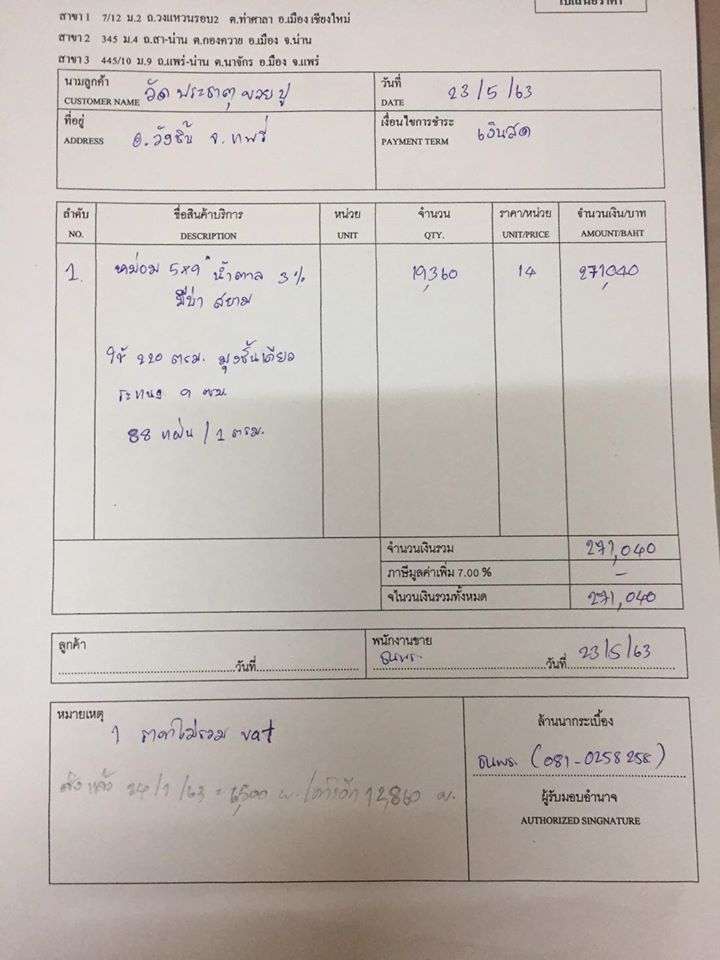 ใบเสนอราคา
สาขา 1 7/12 ม.2 ถ.วงแหวนรอบ2 ต.ท่าศาลา อ.เมือง เชียงใหม่
สาขา 2 345 ม.4 ถ.สา-น่าน ต.กองควาย อ.เมือง จ.น่าน
สาขา 3 445/10 ม.9 ถ.แพร่-น่าน ต.นาจักร อ.มือง จ.แพร่
นามลูกค้า วันที่
CUSTOMER NAME วัด พระธาตุ ขวยปู DATE 23/5/63
ที่อยู่ เงื่อนไขการชำระ
ADDRESS อ.วังชิ้น จ.แพร่ PAYMENT TERM เงินสด
ลำดับ ชื่อสินค้าบริการ หน่วย จำนวน ราคา/หน่วย จำนวนเงิน/บาท
NO. DESCRIPTION UNIT QTY. UNIT/PRICE AMOUNT/BAHT
1. 5x9" น้ำตาล 3% 19,360 14 271,040
สยาม
ใช้ 220 ตรม. มุงชั้นเดียว
9 ซม.
88 แผ่น / 1 ตรม.
จำนวนเงินรวม 271,040
ภาษีมูลค่าเพิ่ม 7.00 % –
จไนวนเงินรวมทั้งหมด 271,040
ลูกค้า พนักงานขาย
วันที่ ธนพร วันที่ 23/5/63
หมายเหตุ
1 ราคาไม่รวม vat
ส่งแล้ว 24/7/63 = 6,500 ผ. 12,860 ผ.
ล้านนากระเบื้อง
ธนพร (081-0258258)
ผู้รับมอบอำนาจ
AUTHORIZED SINGNATURE